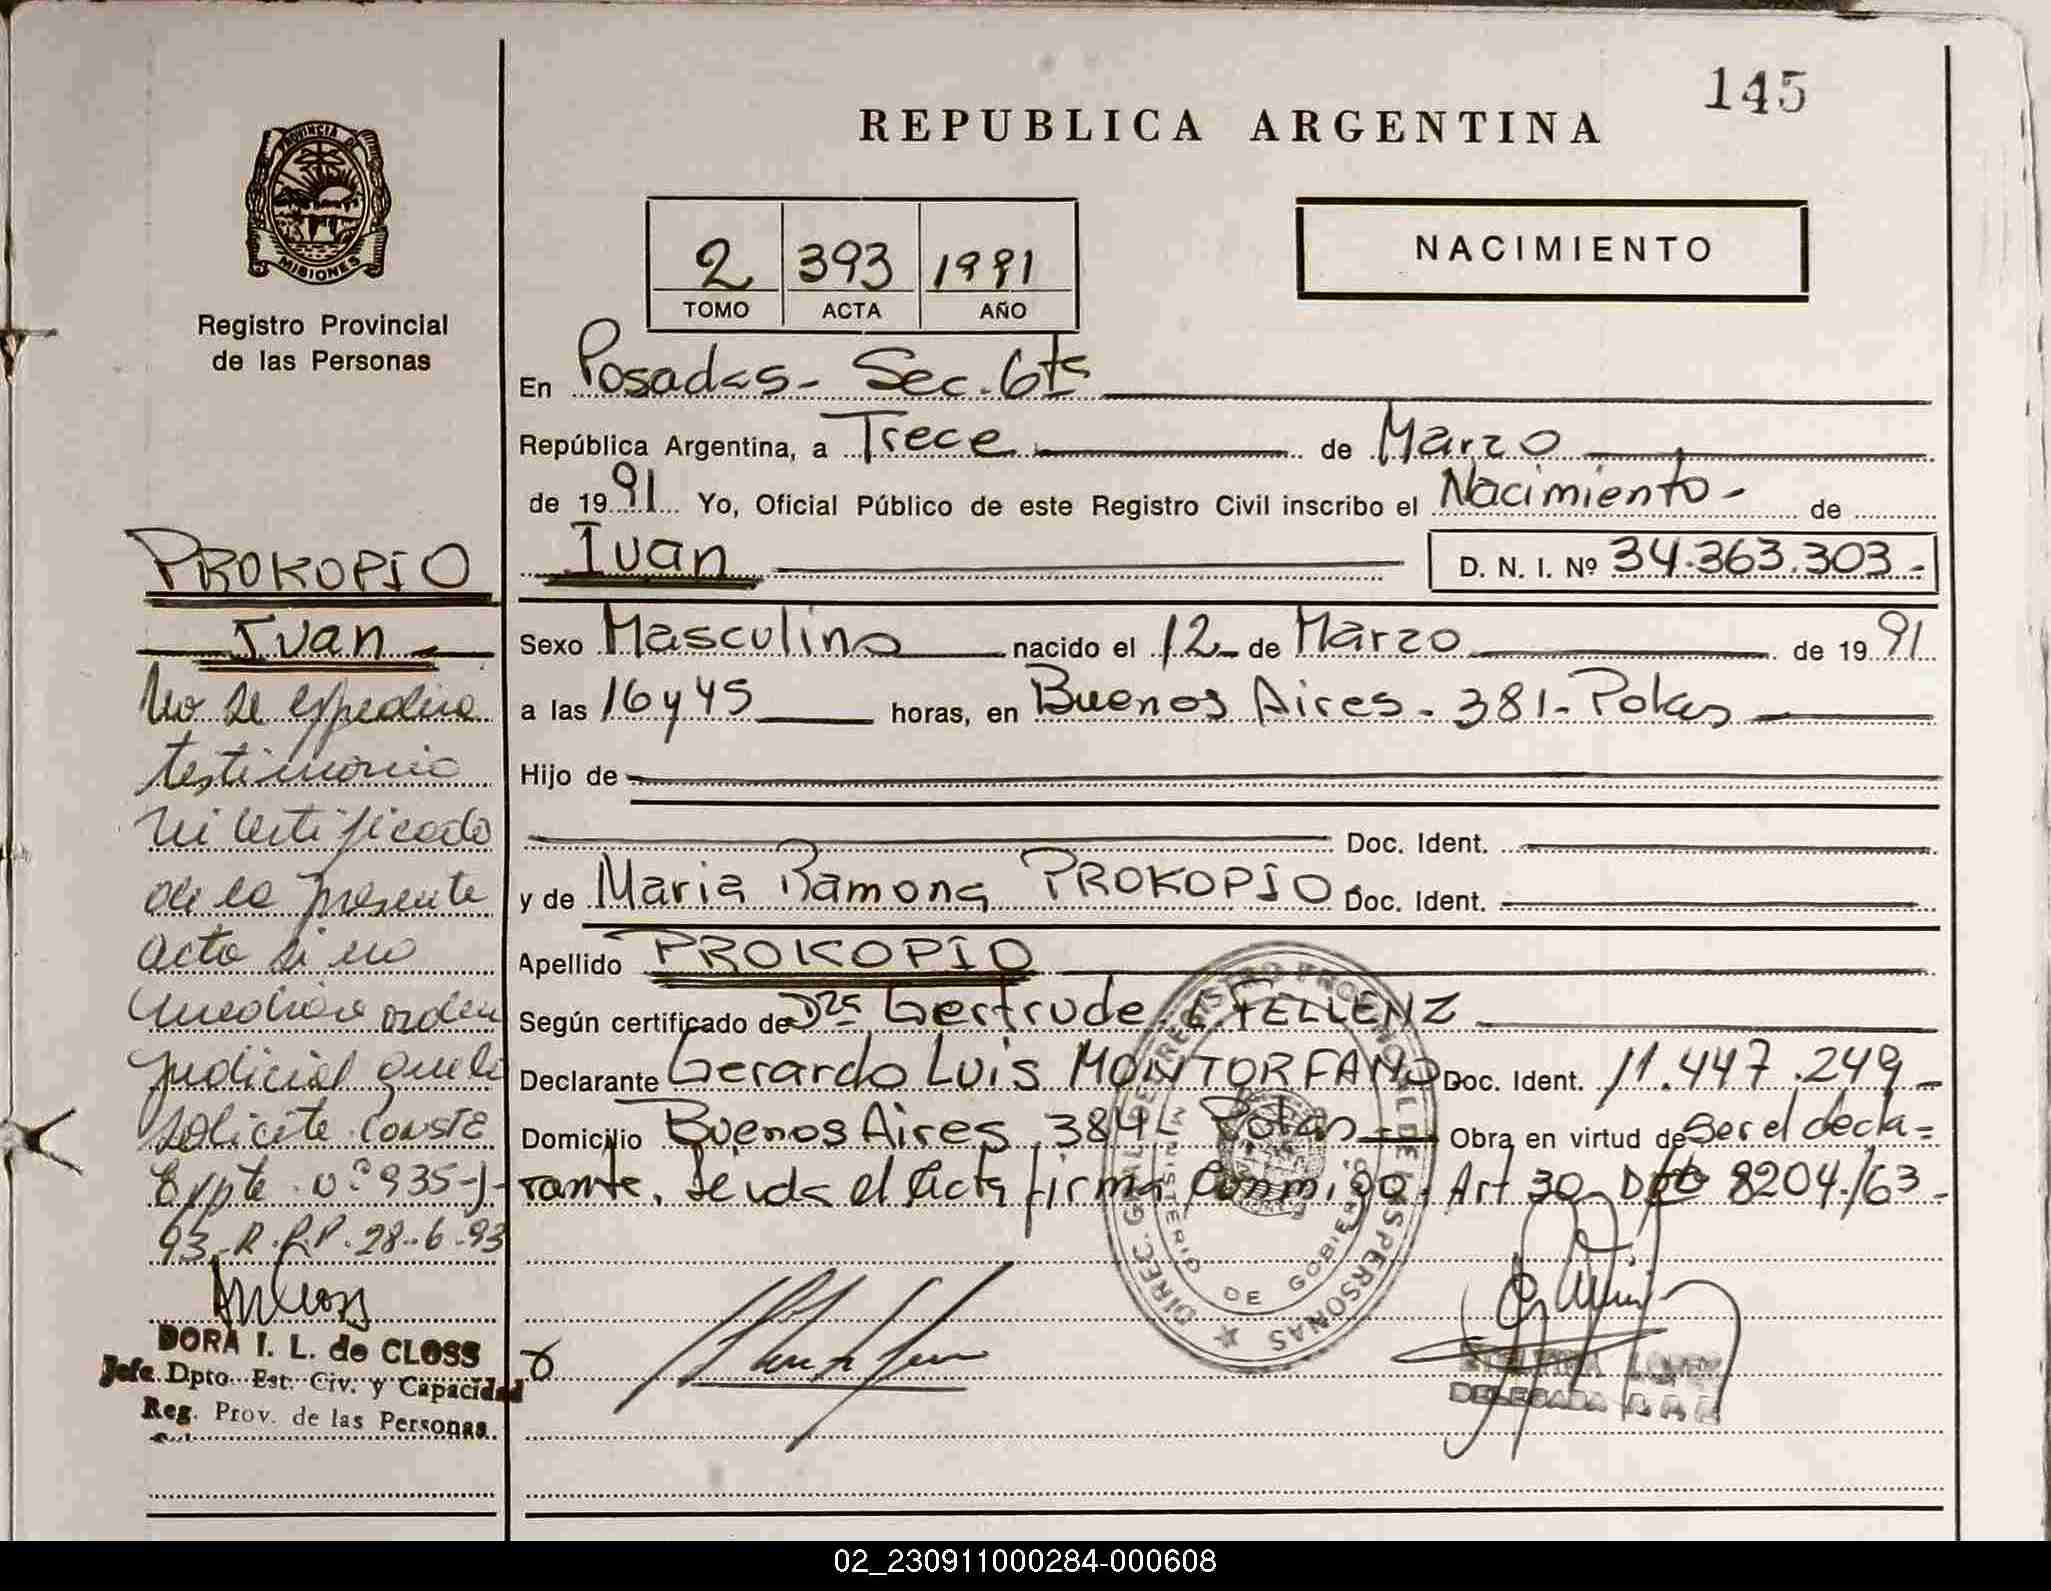 145
REPUBLICA ARGENTINA
PROVINCIA DE
MISIONES
Registro Provincial
de las Personas
2 393 1991
TOMO ACTA AÑO
NACIMIENTO
En Posadas - Sec. 6ta
República Argentina, a Trece de Marzo
de 1991 Yo, Oficial Público de este Registro Civil inscribo el Nacimiento - de
Ivan D. N. I. Nº 34.363.303.-
Sexo Masculino nacido el 12 de Marzo de 1991
a las 16 y 45 horas, en Buenos Aires - 381 - Pdas
Hijo de
Doc. Ident.
y de Maria Ramona PROKOPIO Doc. Ident.
Apellido PROKOPIO
Según certificado de Dra Gertrude FELLENZ
Declarante Gerardo Luis MONTORFANO Doc. Ident. 11.447.249 -
Domicilio Buenos Aires 384 Obra en virtud de Ser el decla=
rante. Leida el Acta firma Conmigo. Art 30 Dto 8204/63 -
DIREC. GRAL. DE REGISTRO PROVINCIAL DE LAS PERSONAS
MINISTERIO DE GOBIERNO
DELEGADA
PROKOPIO
Ivan
No se expedira
testimonio
ni certificado
de la presente
acta si no
mediare orden
judicial que lo
solicite. Consta
Expte nº 935-J-
93-R.P.P. 28-6-93
DORA I. L. de CLOSS
Jefe Dpto. Est. Civ. y Capacidad
Reg. Prov. de las Personas
02_230911000284-000608